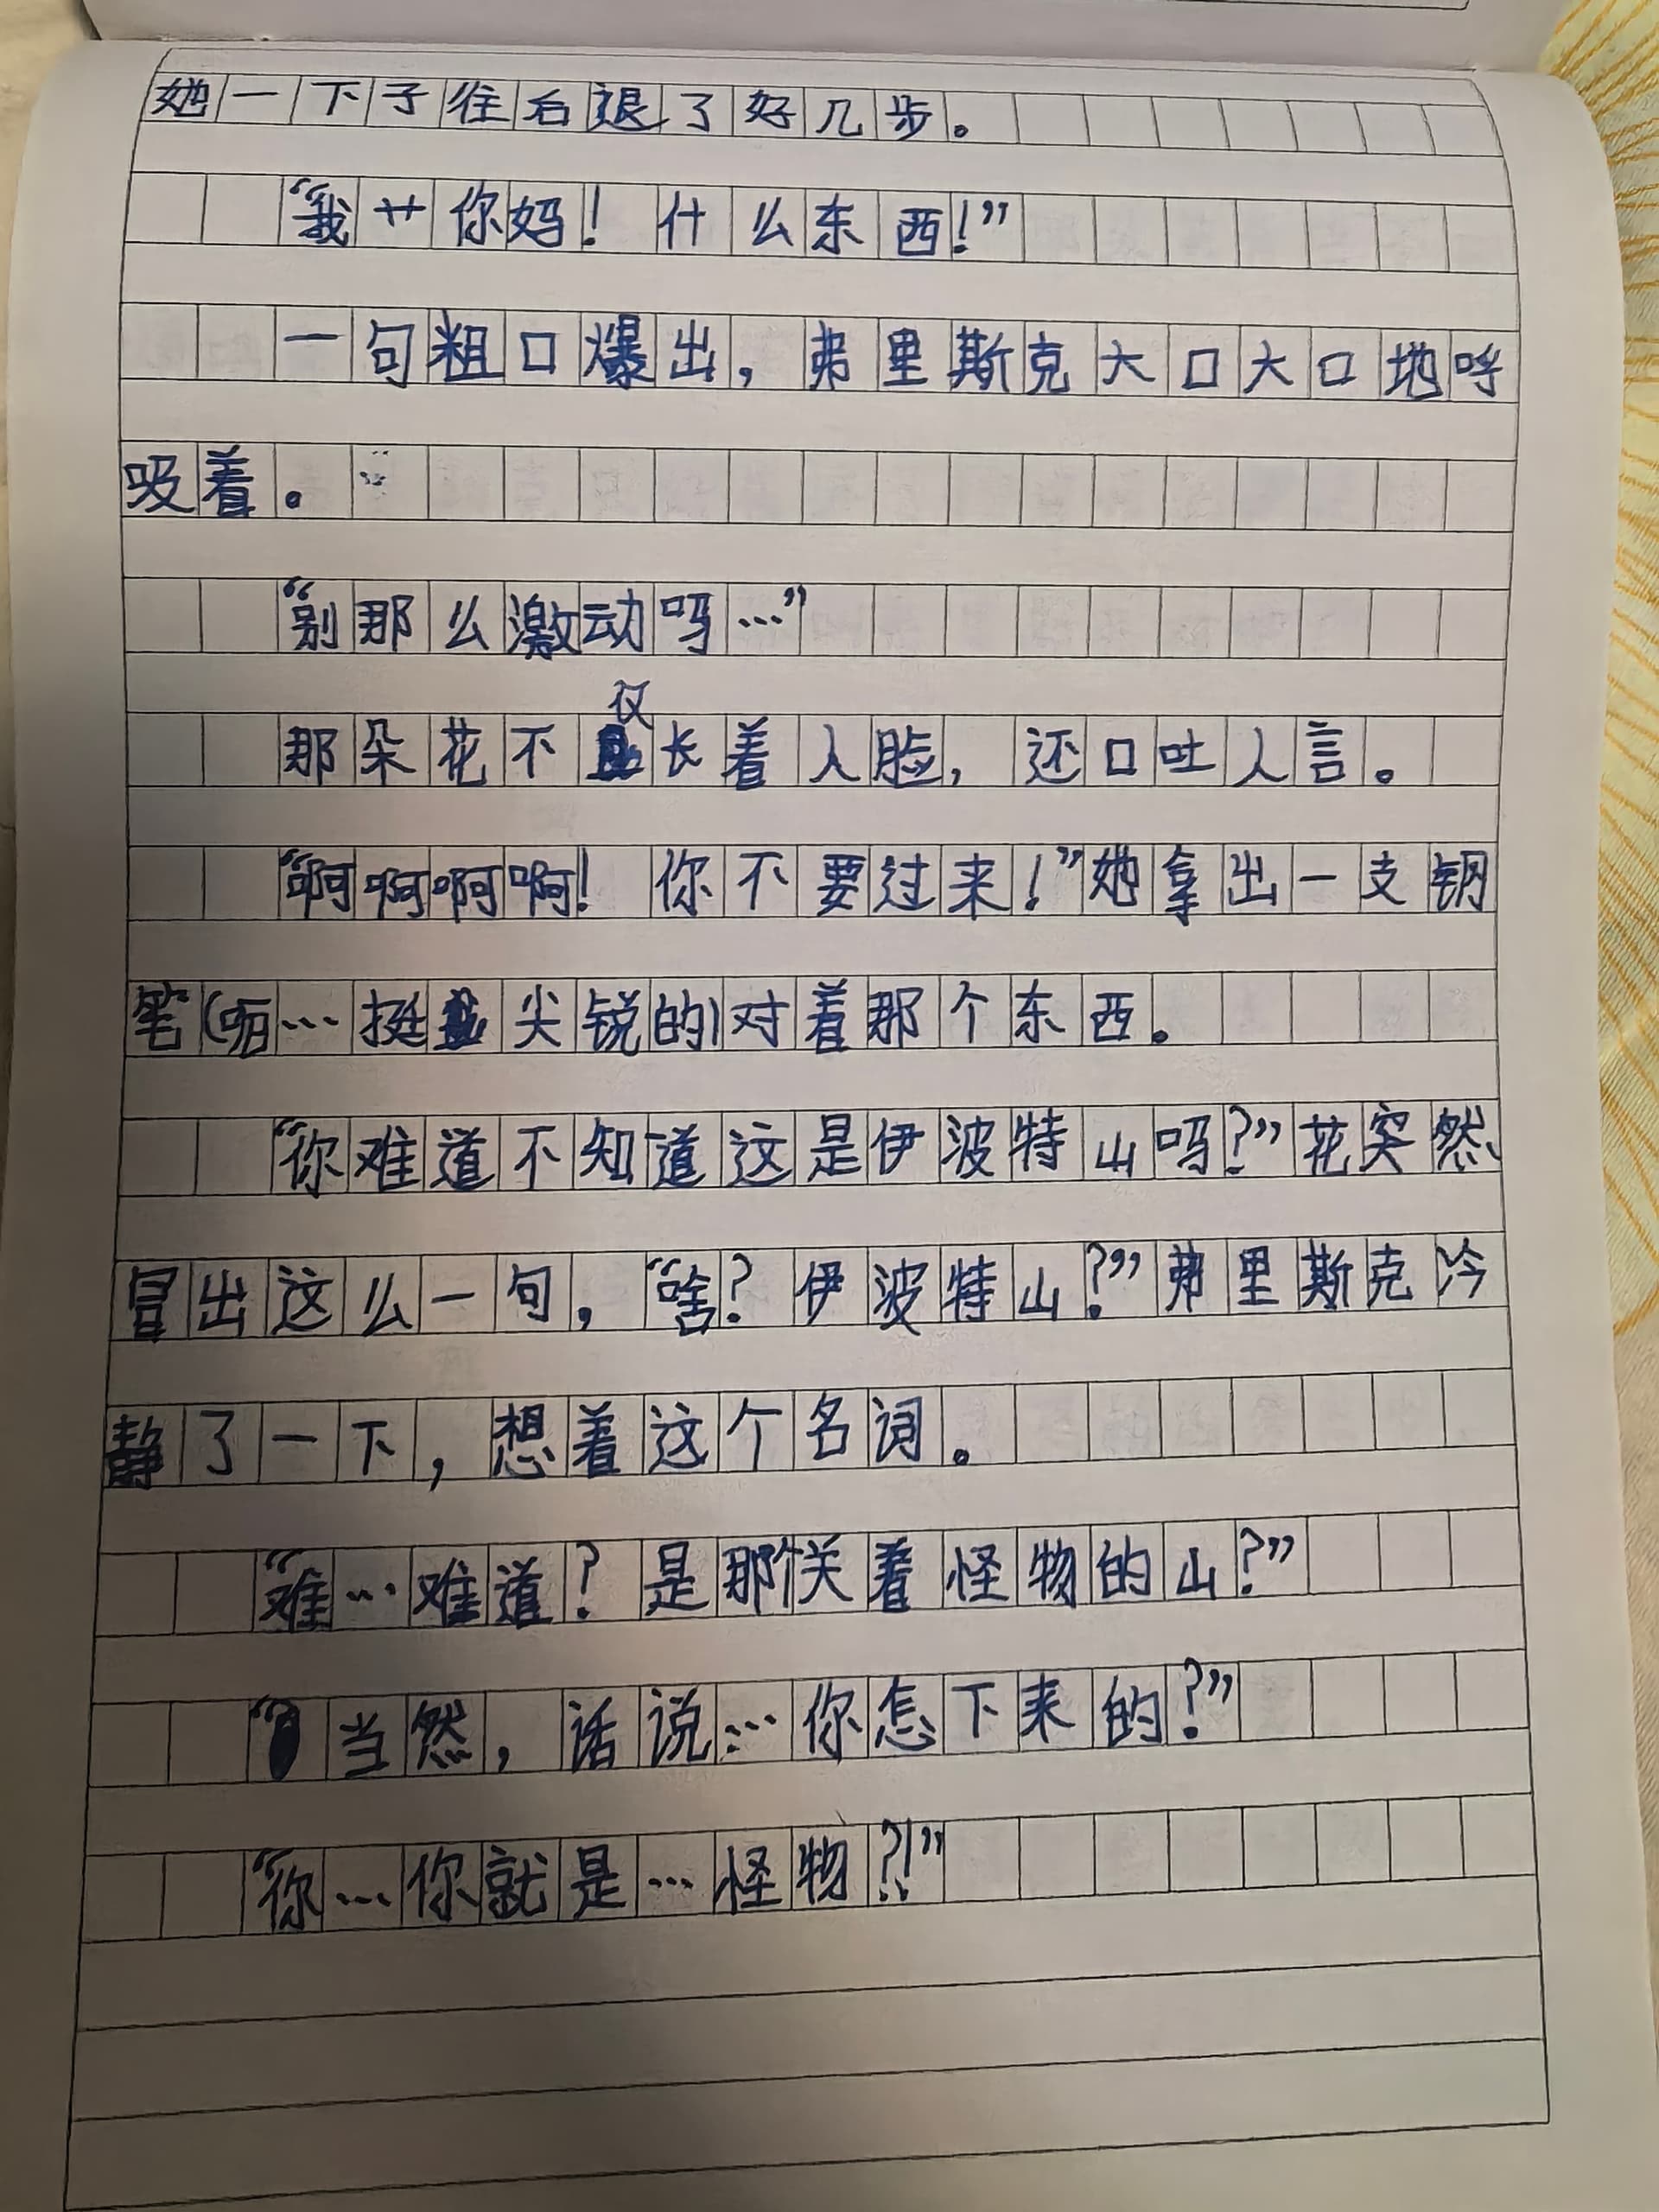 她一下子往后退了好几步。
“我艹你妈！什么东西！”
一句粗口爆出，弗里斯克大口大口地呼
吸着。
“别那么激动吗…”
那朵花不仅长着人脸，还口吐人言。
“啊啊啊啊！你不要过来！”她拿出一支钢
笔（呃…挺尖锐的）对着那个东西。
“你难道不知道这是伊波特山吗？”花突然
冒出这么一句，“啥？伊波特山？”弗里斯克冷
静了一下，想着这个名词。
“难…难道？是那个关着怪物的山？”
“当然，话说…你怎下来的？”
“你…你就是…怪物？！”